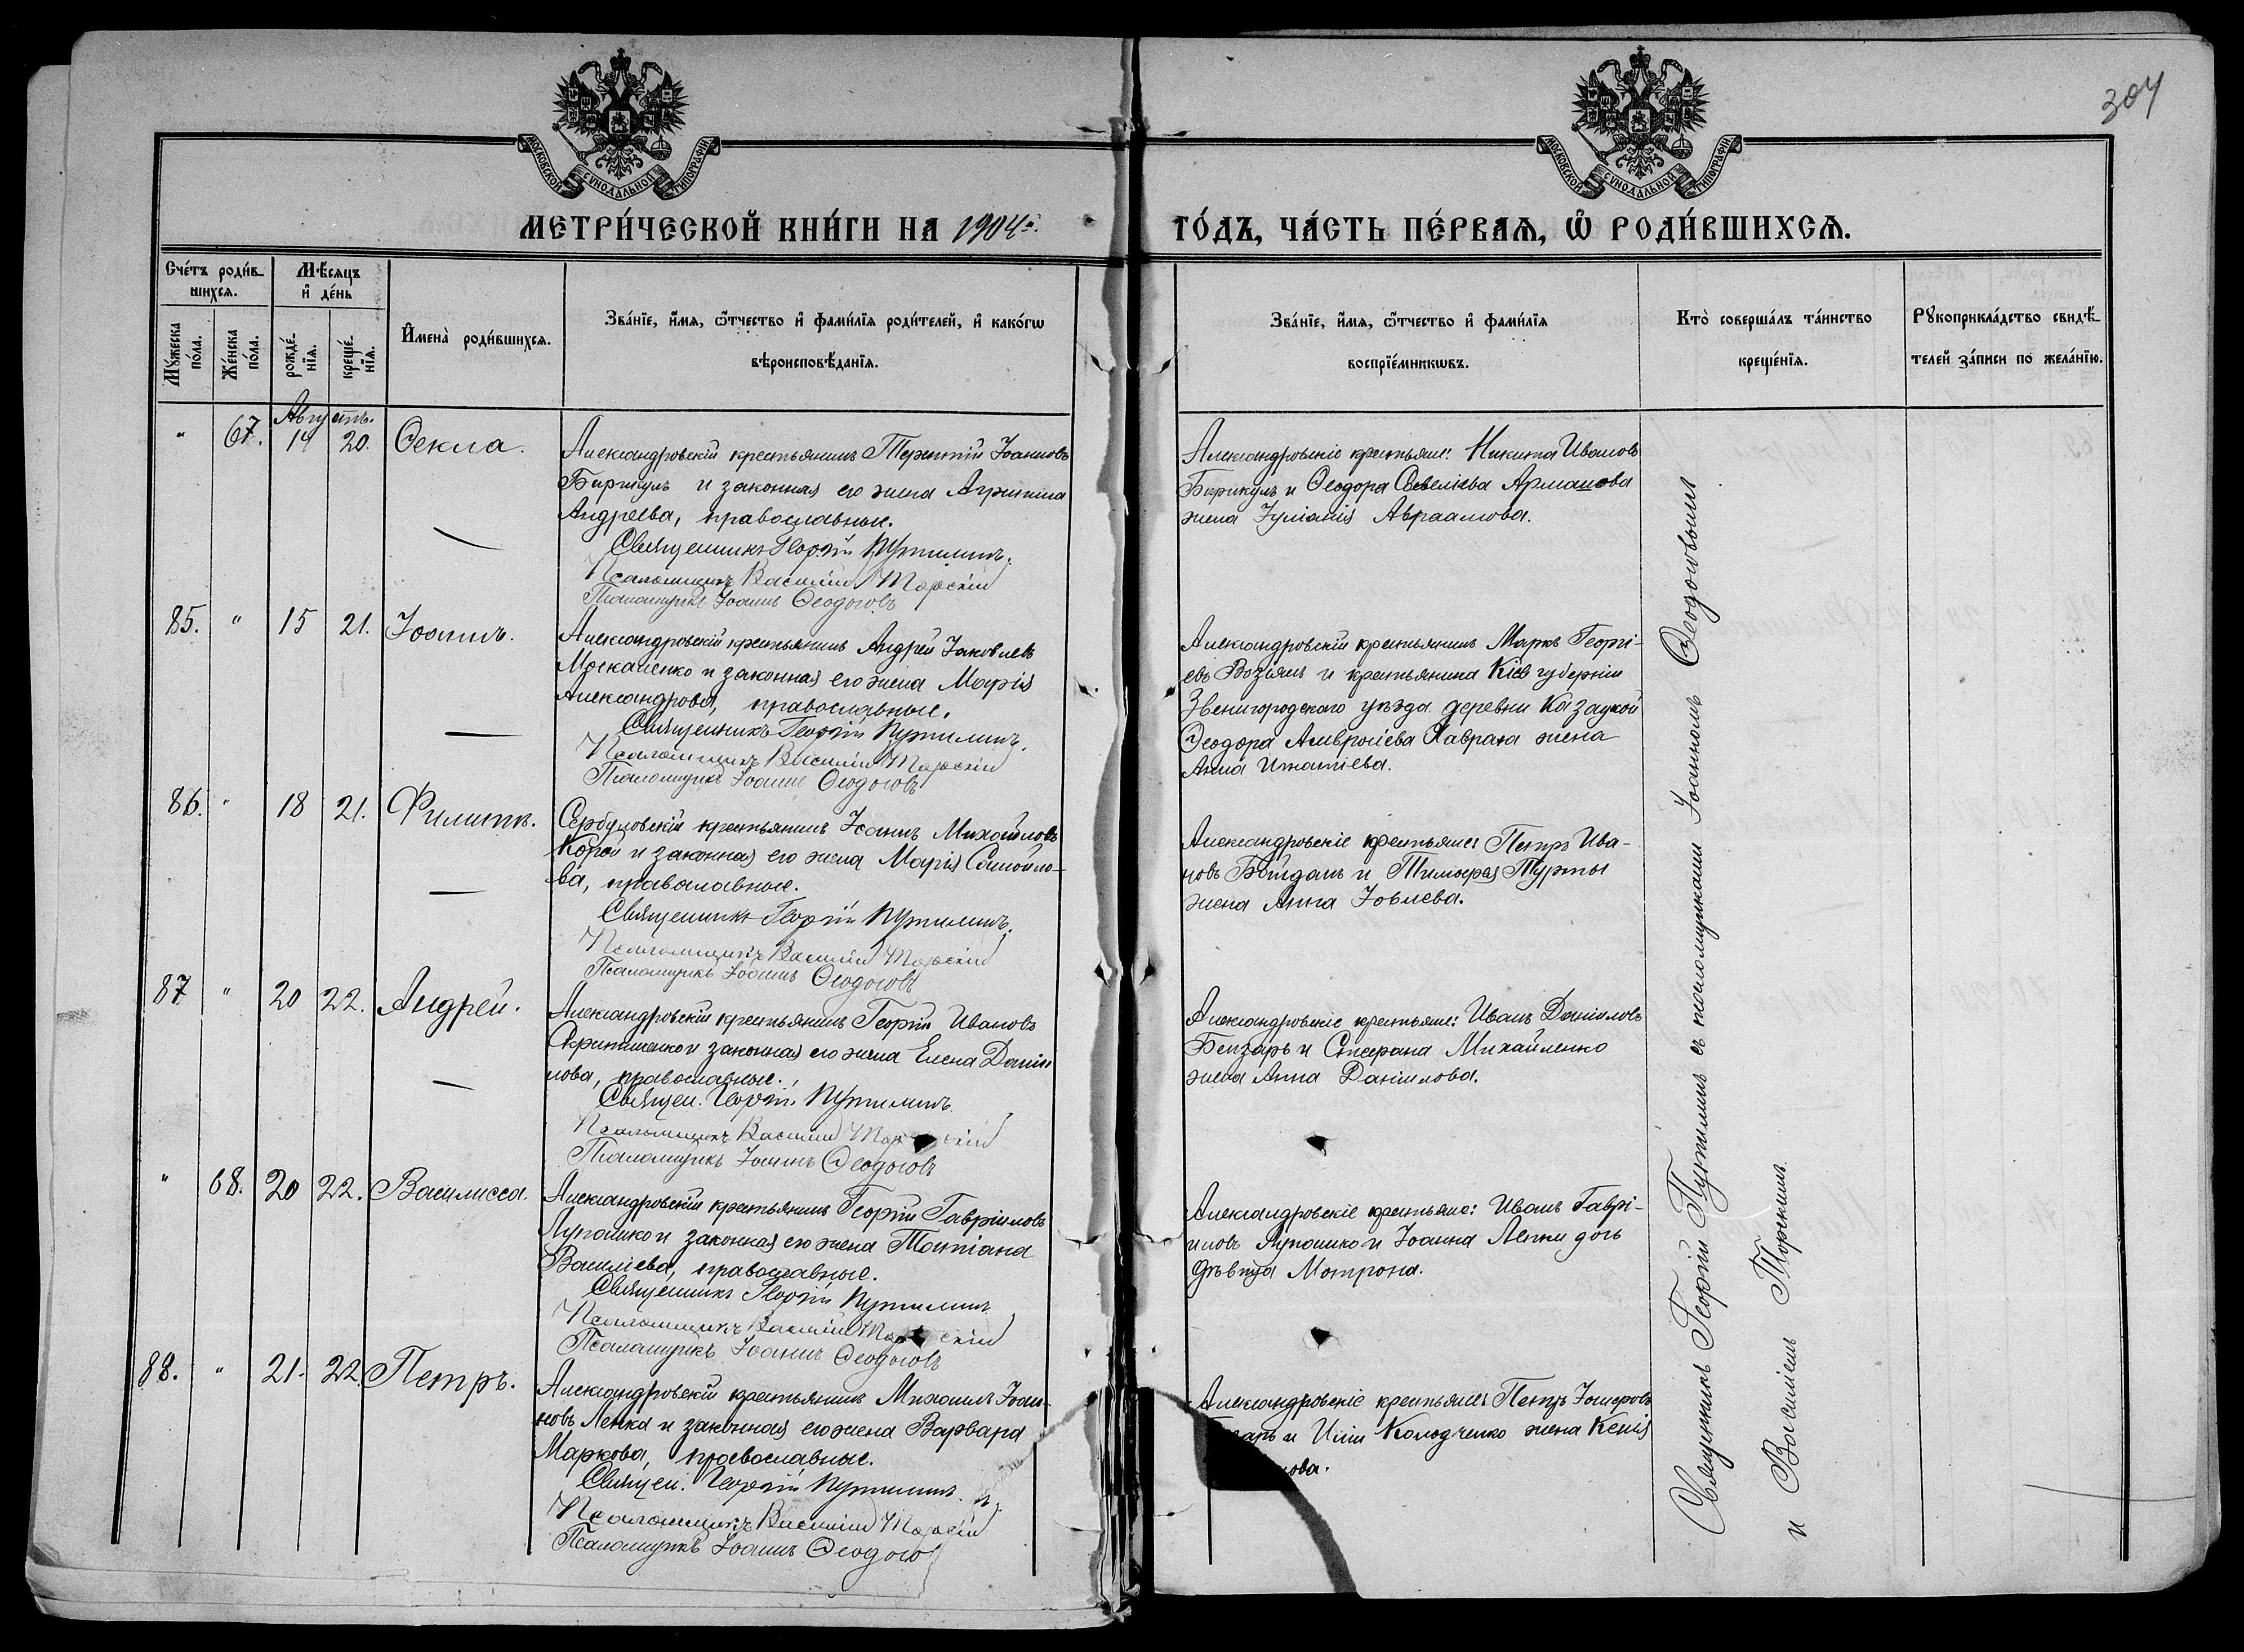 304
МОСКОВСКОЙ СѴНОДАЛЬНОЙ ТИПОГРАФІИ
МОСКОВСКОЙ СѴНОДАЛЬНОЙ ТИПОГРАФІИ
МЕТРИ́ЧЕСКОЙ КНИ́ГИ НА 1904й.
ГО́ДЪ, ЧА́СТЬ ПЕ́РВАѦ, Ѡ РОДИ́ВШИХСѦ.
Сче́тъ роди́в-
шихсѧ.
Мѣ́сѧцъ
и҆ де́нь
Мꙋ́жеска
по́ла.
Же́нска
по́ла.
рожде́-
нїѧ.
креще́-
нїѧ.
И҆мена̀ роди́вшихсѧ.
Зва́нїе, и҆́мѧ, ѻ҆́тчество и҆ фами́лїѧ роди́телей, и҆ како́гѡ
вѣроисповѣ́данїѧ.
Зва́нїе, и҆́мѧ, ѻ҆́тчество и҆ фами́лїѧ
воспрїе́мникѡвъ.
Кто̀ соверша́лъ та́инство
креще́нїѧ.
Рꙋкоприкла́дство свидѣ́-
телей за́писи по жела́нїю.
Августъ.
" 67. 14 20. Ѳекла.
Александровскій крестьянинъ Терентій Іоанновъ
Бирикулъ и законная его жена Агрипина
Андреева, православные.
Священникъ Георгій Путилинъ.
Псаломщикъ Василій Торскій
Псаломщикъ Іоаннъ Ѳеодосовъ
Александровскіе крестьяне: Никита Ивановъ
Бирикулъ и Ѳеодора Савеліева Армашова
жена Іуліанія Авраамова.
85. " 15 21. Іоаннъ.
Александровскій крестьянинъ Андрей Іаковлевъ
Москаленко и законная его жена Марія
Александрова, православные.
Священникъ Георгій Путилинъ.
Псаломщикъ Василій Торскій
Псаломщикъ Іоаннъ Ѳеодосовъ
Александровскій крестьянинъ Маркъ Георгі-
евъ Возіянъ и крестьянина Кіев губерніи
Звенигородскаго уѣзда деревни Казацкой
Ѳеодора Амвросіева жена
Анна Игнатіева.
86. " 18 21. Филиппъ.
Сербуловскій крестьянинъ Іоаннъ Михайловъ
Корой и законная его жена Марія Самойло-
ва, православные.
Священникъ Георгій Путилинъ.
Псаломщикъ Василій Торскій
Псаломщикъ Іоаннъ Ѳеодосовъ
Александровскіе крестьяне: Петръ Ива-
новъ Бойданъ и Тимофея Турты
жена Анна Іовлева.
87 " 20 22. Андрей.
Александровскій крестьянинъ Георгій Ивановъ
и законная его жена Елена Даніи
лова, православные.
Священ. Георгій Путилинъ.
Псаломщикъ Василій Торскій
Псаломщикъ Іоаннъ Ѳеодосовъ
Александровскіе крестьяне: Иванъ Даніиловъ
Бензарь и Стефана Михайленко
жена Анна Даніилова.
" 68. 20 22. Василисса.
Александровскій крестьянинъ Георгій Гавріиловъ
Лупашко и законная его жена Татіана
Василіева, православные.
Священникъ Георгій Путилинъ
Псаломщикъ Василій Торскій
Псаломщикъ Іоаннъ Ѳеодосовъ
Александровскіе крестьяне: Иванъ Гаврі-
иловъ Лупашко и Іоанна Ленки дочь
дѣвица Матрона.
88. " 21. 22. Петръ.
Александровскій крестьянинъ Михаилъ Іоан-
новъ Ленка и законная его жена Варвара
Маркова, православные.
Священ. Георгій Путилинъ.
Псаломщикъ Василій Торскій
Псаломщикъ Іоаннъ Ѳеодосо
Александровскіе крестьяне: Петръ
и Иліи Колодченко жена Ксенія
нова.
Священникъ Георгій Путилинъ съ псаломщиками Іоанномъ Ѳеодосовымъ
и Василіемъ Торскимъ.